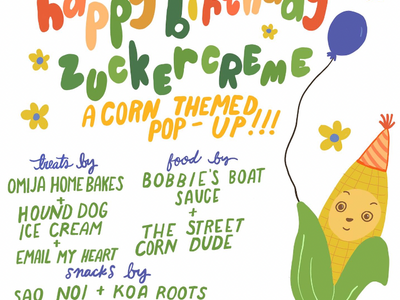 happy birthday
ZUCKERCREME
A CORN THEMED
POP-UP!!!
treats by
OMIJA HOME BAKES
+
HOUND DOG
ICE CREAM
+
EMAIL MY HEART
food by
BOBBIE'S BOAT
SAUCE
+
THE STREET
CORN DUDE
snacks by
SAO NOI + KOA ROOTS